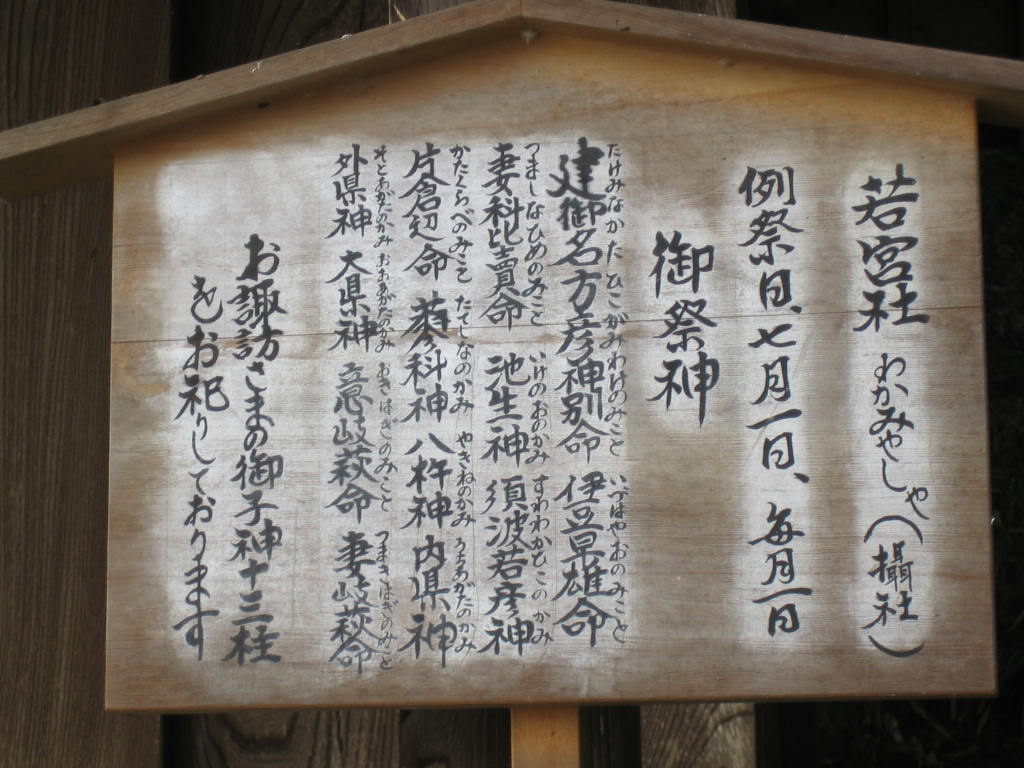 若宮社 わかみやしや(攝社)
例祭日、七月一日、毎月一日
御祭神
たけみなかた ひこがみわけのみこと いづはやおのみこと
建御名方彦神別命 伊豆早雄命
つましなひめのみこと いけのおのかみ すわわかひこのかみ
妻科比賣命 池生神 須波若彦神
かたくらべのみこと たてしなのかみ やきねのかみ うちあがたのかみ
片倉辺命 蓼科神 八杵神 内県神
そとあがたのかみ おおあがたのかみ おきはぎのみこと つまきはぎのみこと
外県神 大県神 意岐萩命 妻岐萩命
お諏訪さまの御子神十三柱
をお祀りしております